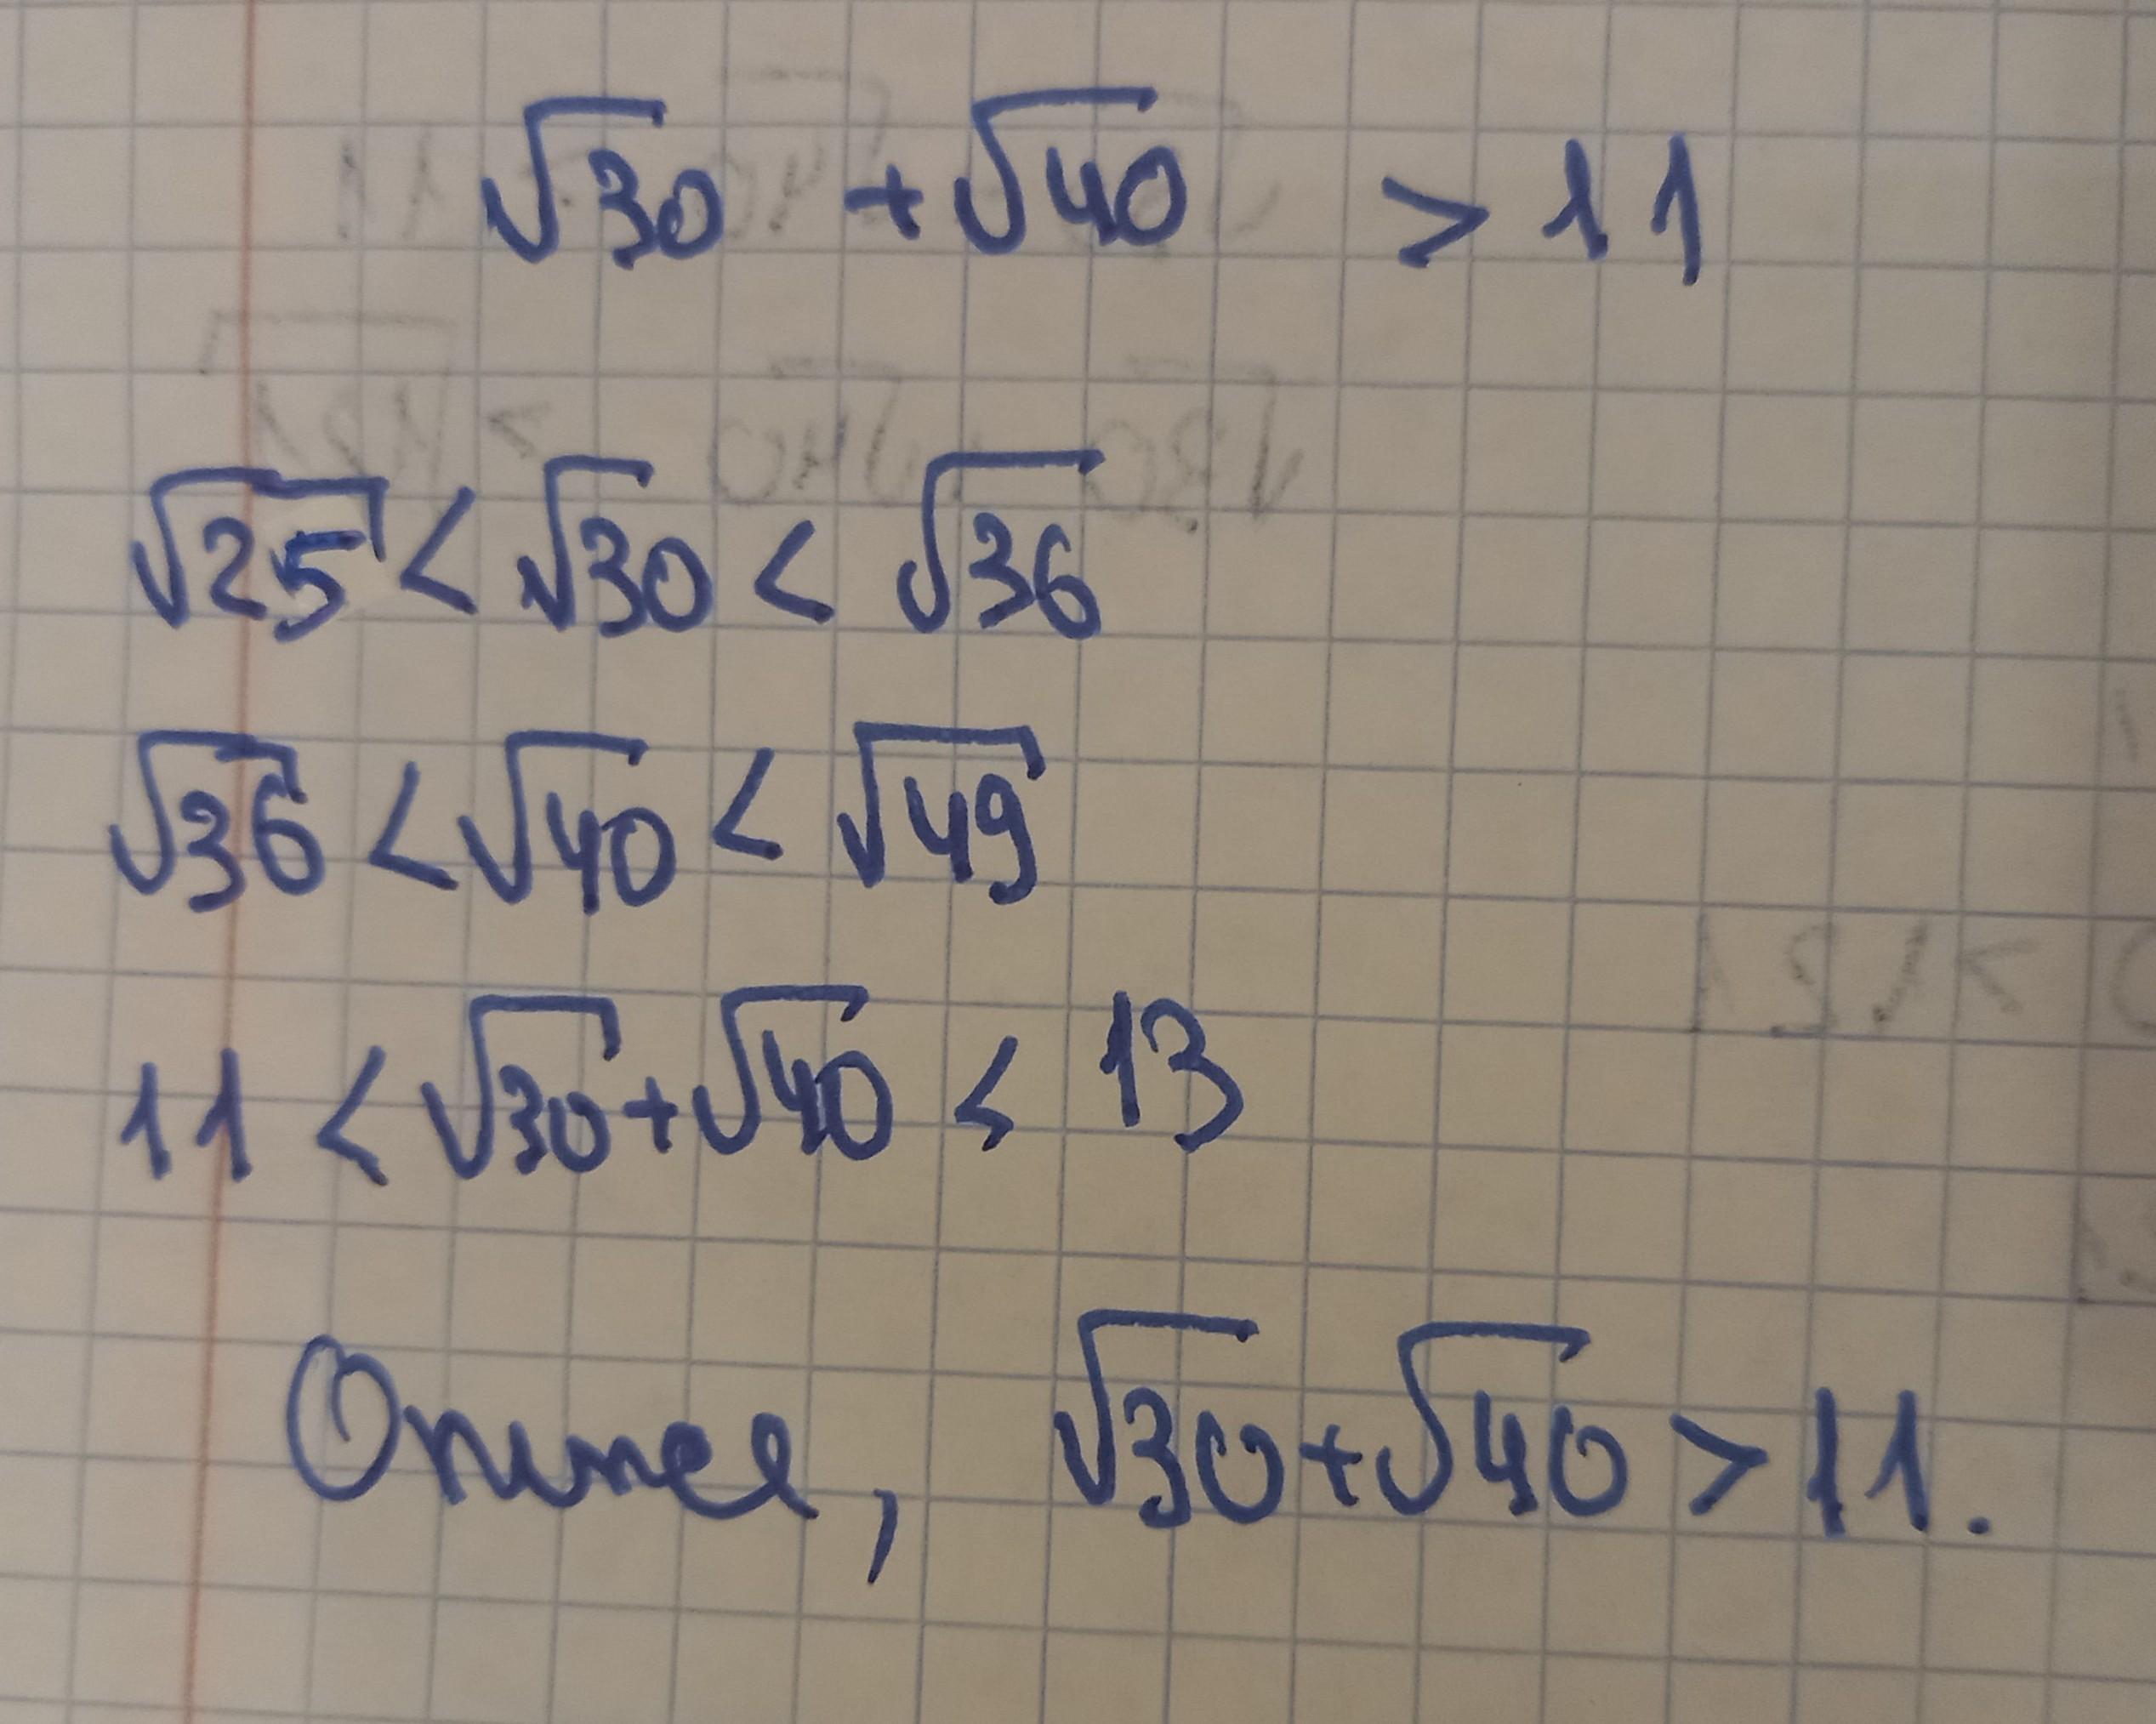 √30 + √40 > 11
√25 < √30 < √36
√36 < √40 < √49
11 < √30 + √40 < 13
Отже, √30 + √40 > 11.